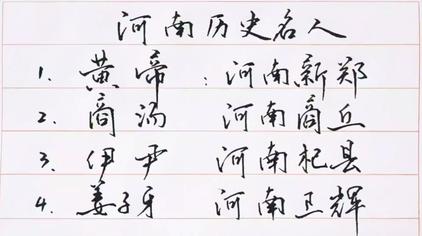 河南历史名人
1. 黄帝：河南新郑
2. 商汤 河南商丘
3. 伊尹 河南杞县
4. 姜子牙 河南卫辉